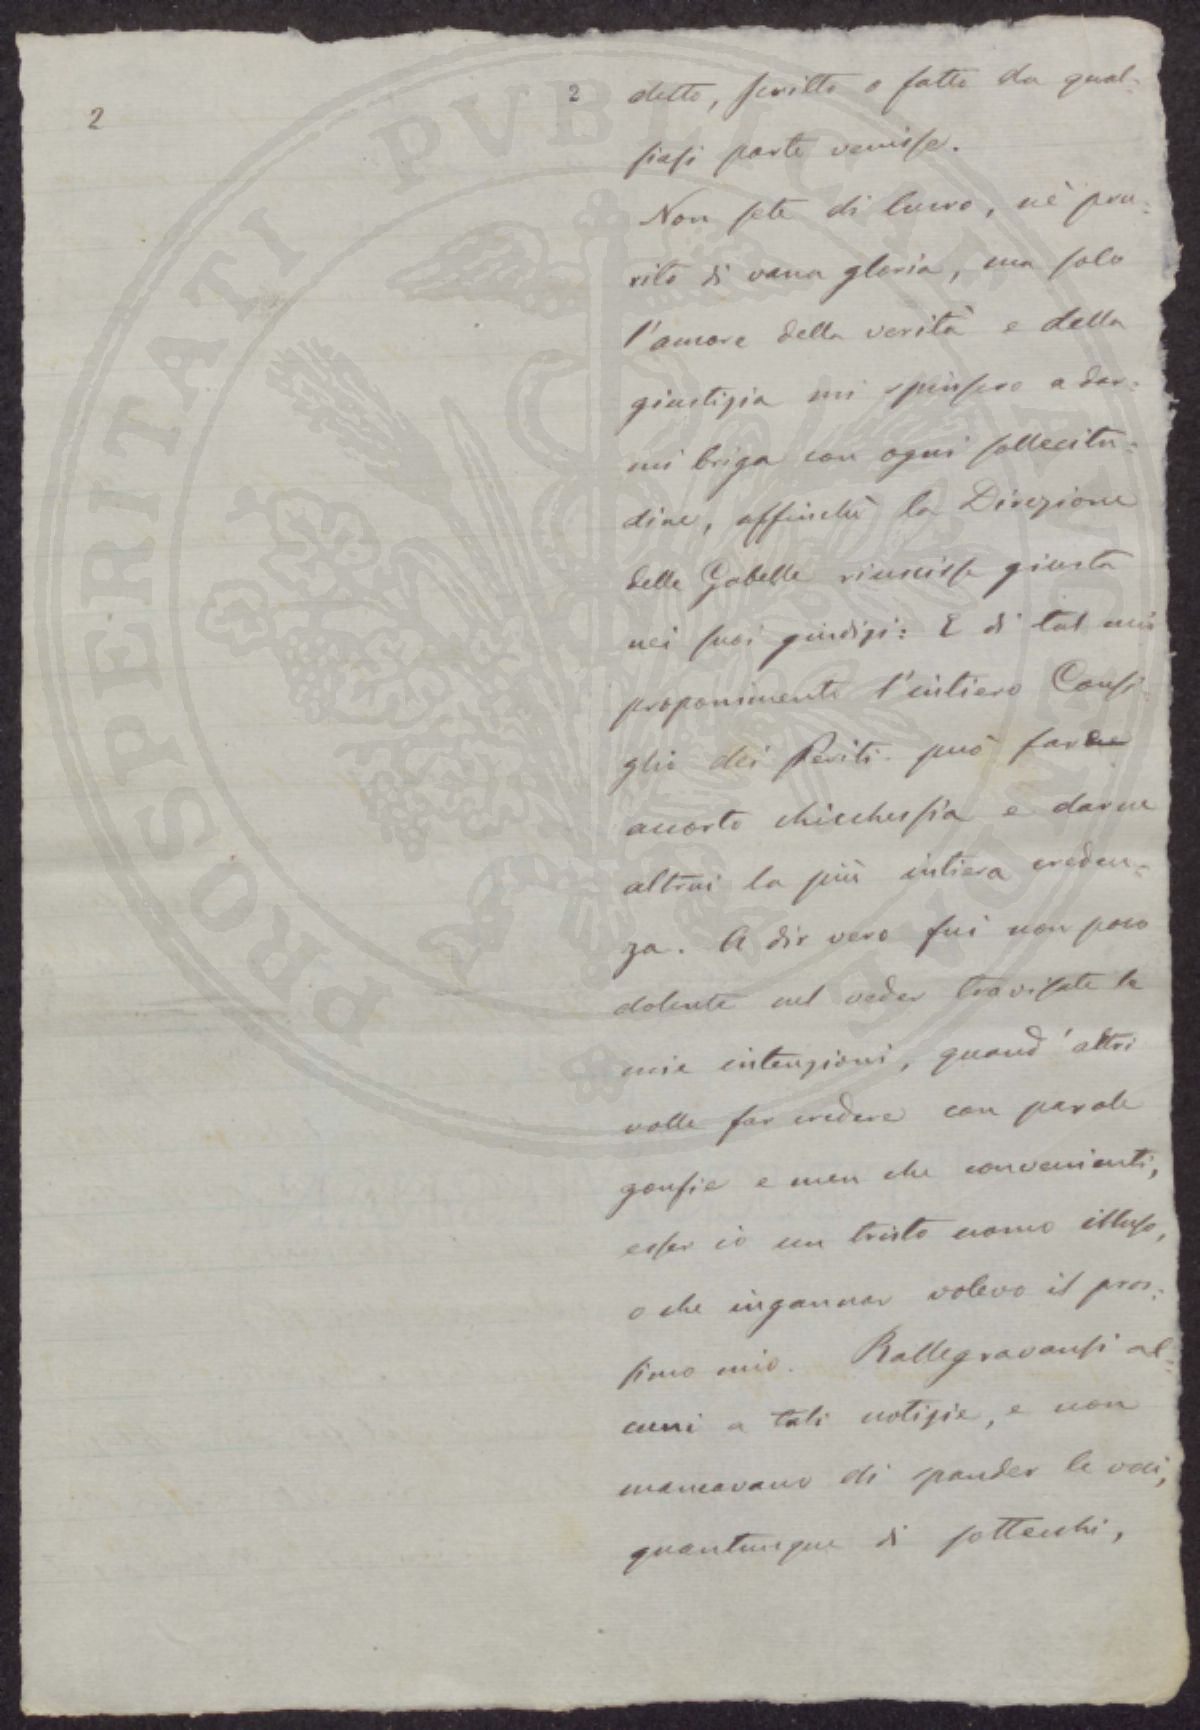 2
2
detto, scritto o fatto da qual=
siasi parte venisse.
Non sete di lucro, nè pru=
rito di vana gloria, ma solo
l'amore della verità e della
giustizia mi spinsero a dar=
mi briga con ogni sollecitu=
dine, affinchè la Direzione
delle Gabelle riuscisse giusta
nei suoi giudizi: E di tal mio
proponimento l'intiero Consi=
glio dei Periti può farne
accorto chicchessia e darne
altrui la più intiera creden=
za. A dir vero fui non poco
dolente nel veder travisate le
mie intenzioni, quand'altri
volle far credere con parole
gonfie e men che convenienti,
esser io un tristo uomo illuso,
o che ingannar volevo il pros=
simo mio. Rallegravansi al=
cuni a tali notizie, e non
mancavano di spander le voci,
quantunque di sottecchi,
PROSPERITATI PVBLICAE AVGENDAE